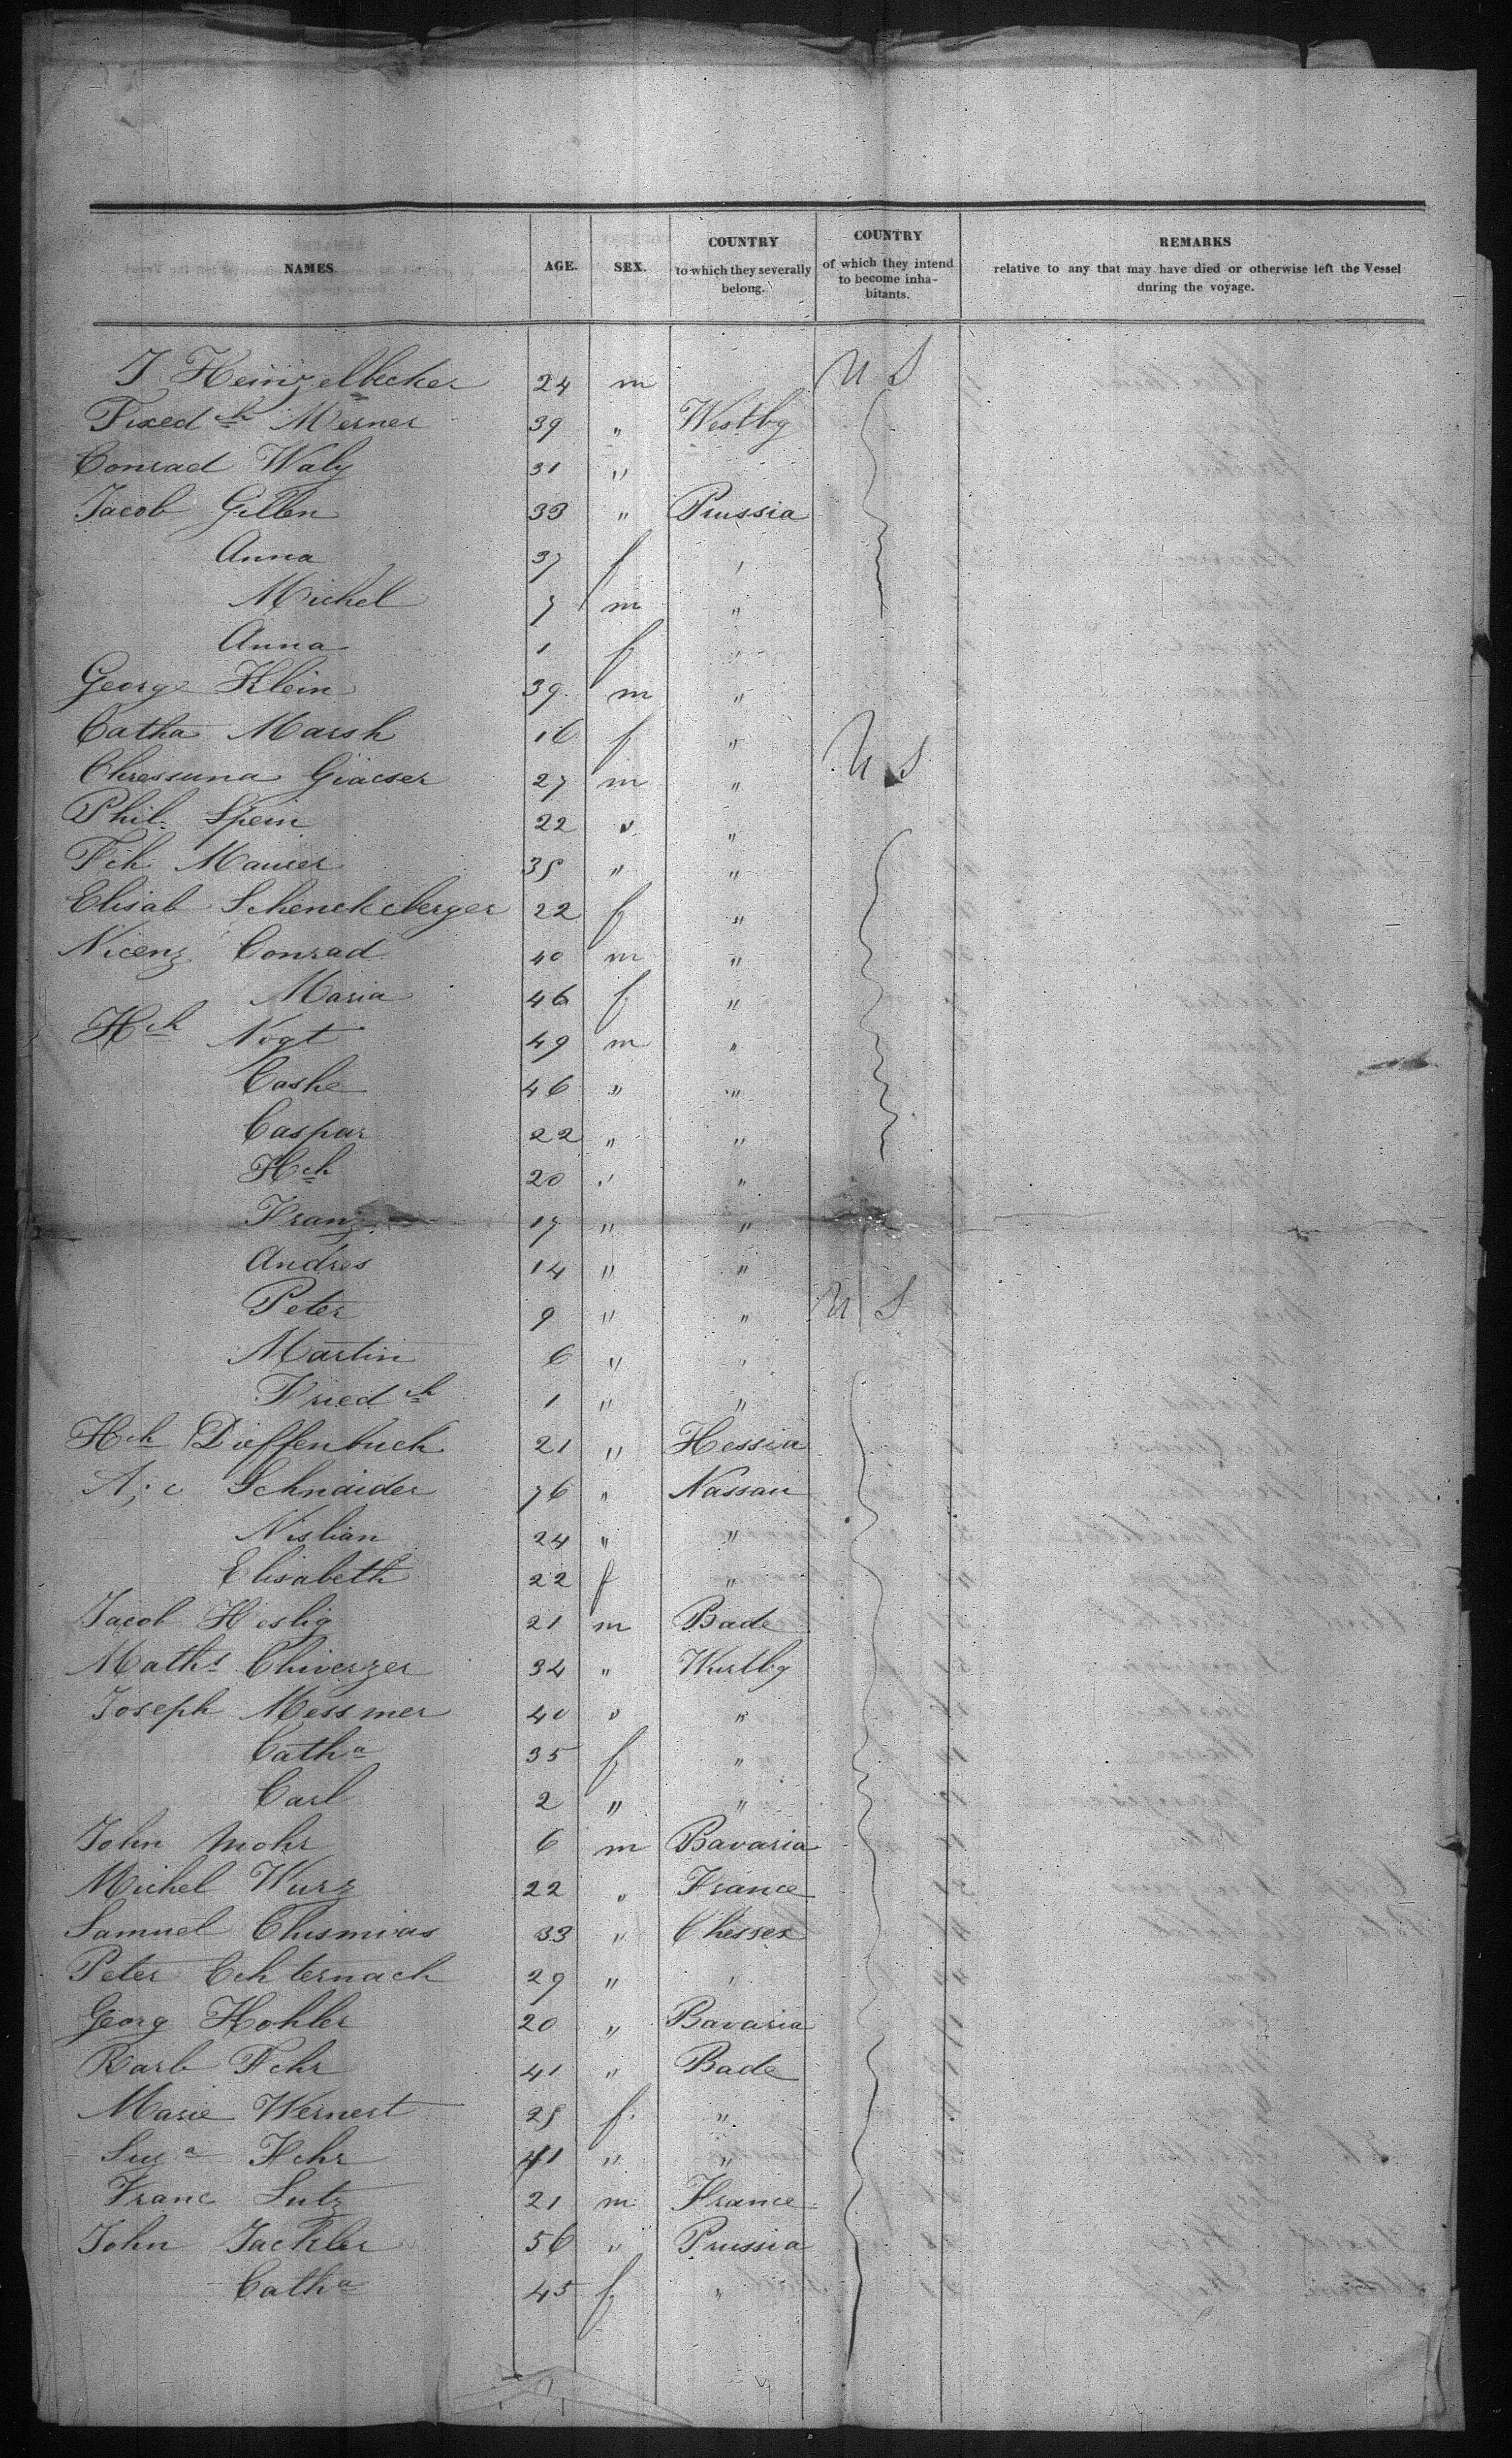 NAMES AGE. SEX. COUNTRY to which they severally belong. COUNTRY of which they intend to become inhabitants. REMARKS relative to any that may have died or otherwise left the Vessel during the voyage.
J Heinzelbecker 24 m U S
Fixed ch Merner 39 " Westbg
Conrad Waly 31 "
Jacob Gillen 33 " Prussia
Anna 37 f "
Michel 7 m "
Anna 1 f "
George Klein 39 m "
Catha Marsh 16 f " U S
Chressuna Giaeser 27 m "
Phil. Spein 22 " "
Fch Maurer 35 " "
Elisab Schenckeberger 22 f "
Nicenz Conrad 40 m "
Maria 46 f "
Hch Nogt 49 m "
Cashe 46 " "
Caspar 22 " "
Hch 20 " "
Franz 17 " "
Andres 14 " "
Peter 9 " " U S
Martin 6 " "
Friedch 1 " "
Hch Dieffenbuck 21 " Hessia
Schnaider 76 " Nassau
Nislian 24 " "
Elisabeth 22 f "
Jacob Heslig 21 m Bade
Maths Chiverzer 34 " Wurtbg
Joseph Messmer 40 " "
Catha 35 f "
Carl 2 " "
John Mohr 6 m Bavaria
Michel Wurz 22 " France
Samuel Chismias 33 " Chesses
Peter Echternach 29 " "
Georg Kohler 20 " Bavaria
Barb Fehr 41 " Bade
Marie Wernert 25 f "
Susa Fehr 41 " "
Franc Lutz 21 m France
John Jackler 56 " Prussia
Catha 45 f "